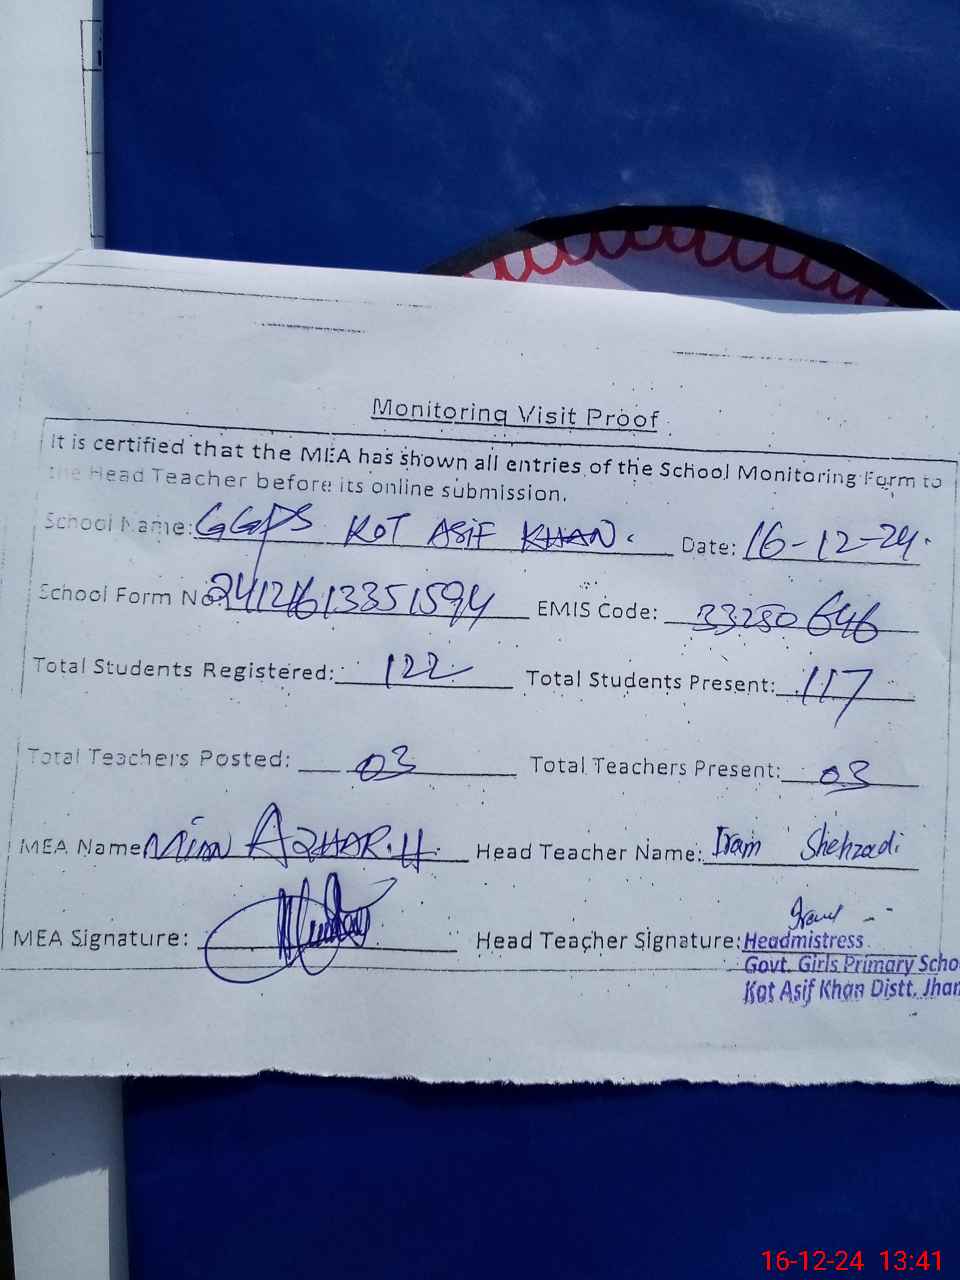 Monitoring Visit Proof
It is certified that the MEA has shown all entries of the School Monitoring Form to
the Head Teacher before its online submission.
School Name: GGPS KOT ASIF KHAN. Date: 16-12-24.
School Form No: 24121613351594 EMIS Code: 33280646
Total Students Registered: 122 Total Students Present: 117
Total Teachers Posted: 03 Total Teachers Present: 03
MEA Name Mian AZHAR.H. Head Teacher Name: Iram Shehzadi
MEA Signature: Head Teacher Signature: Iram
Headmistress
Govt. Girls Primary Scho
Kot Asif Khan Distt. Jhan
16-12-24 13:41